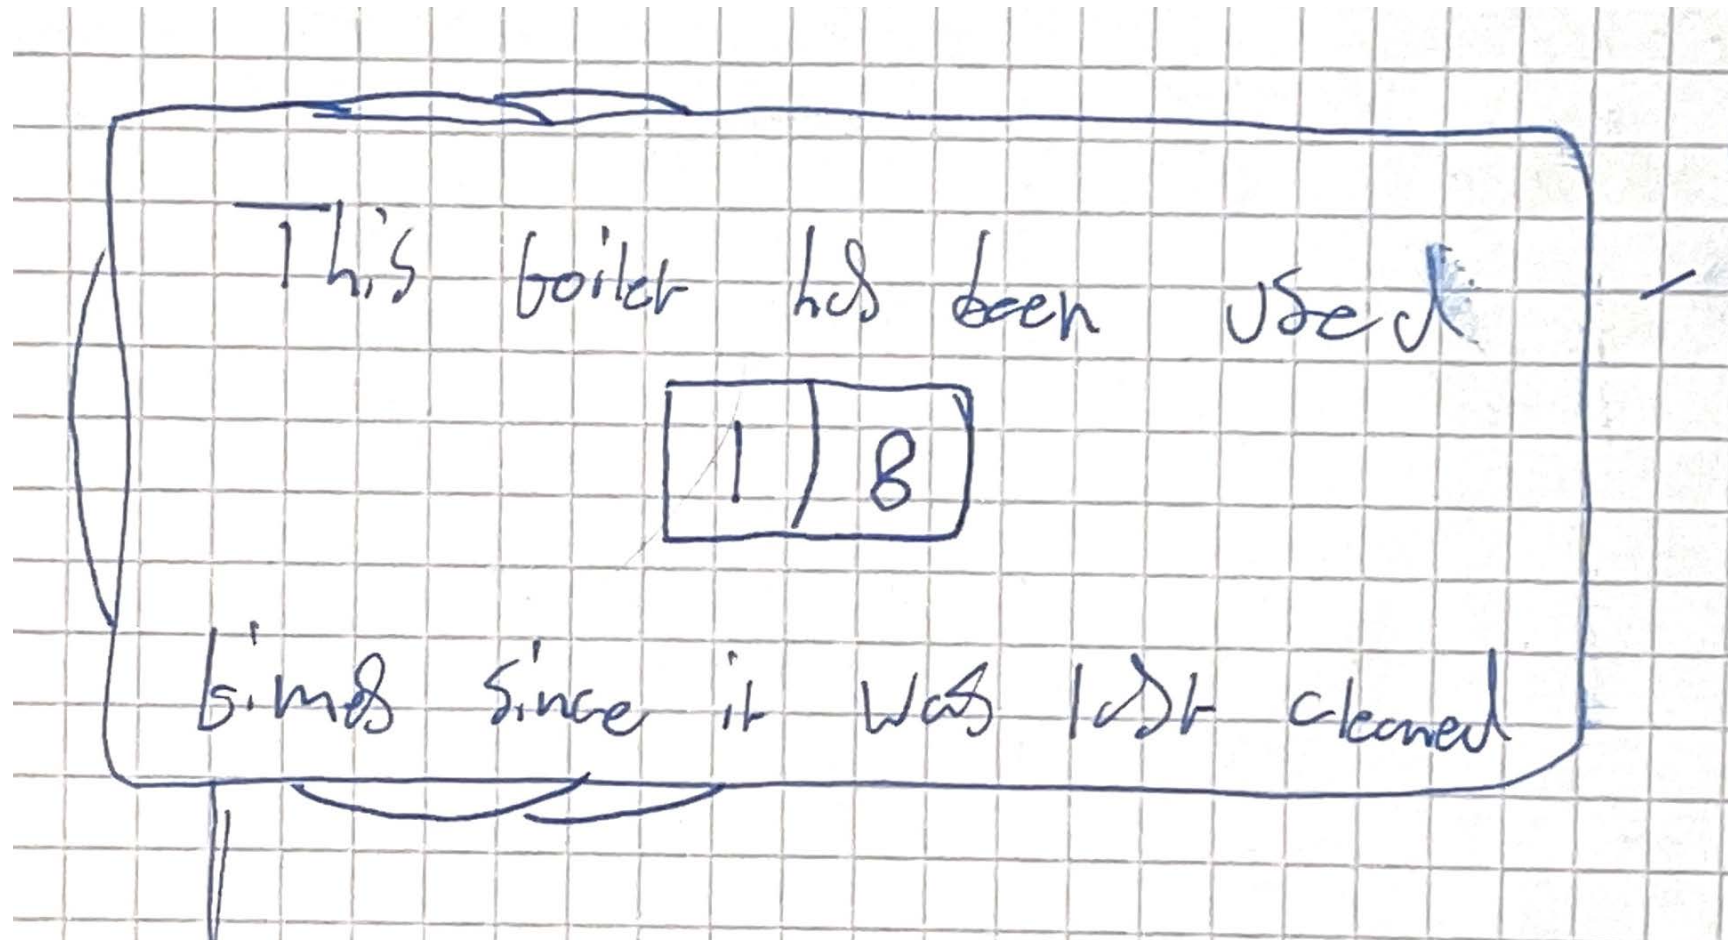 This toilet has been used
18
times since it was last cleaned